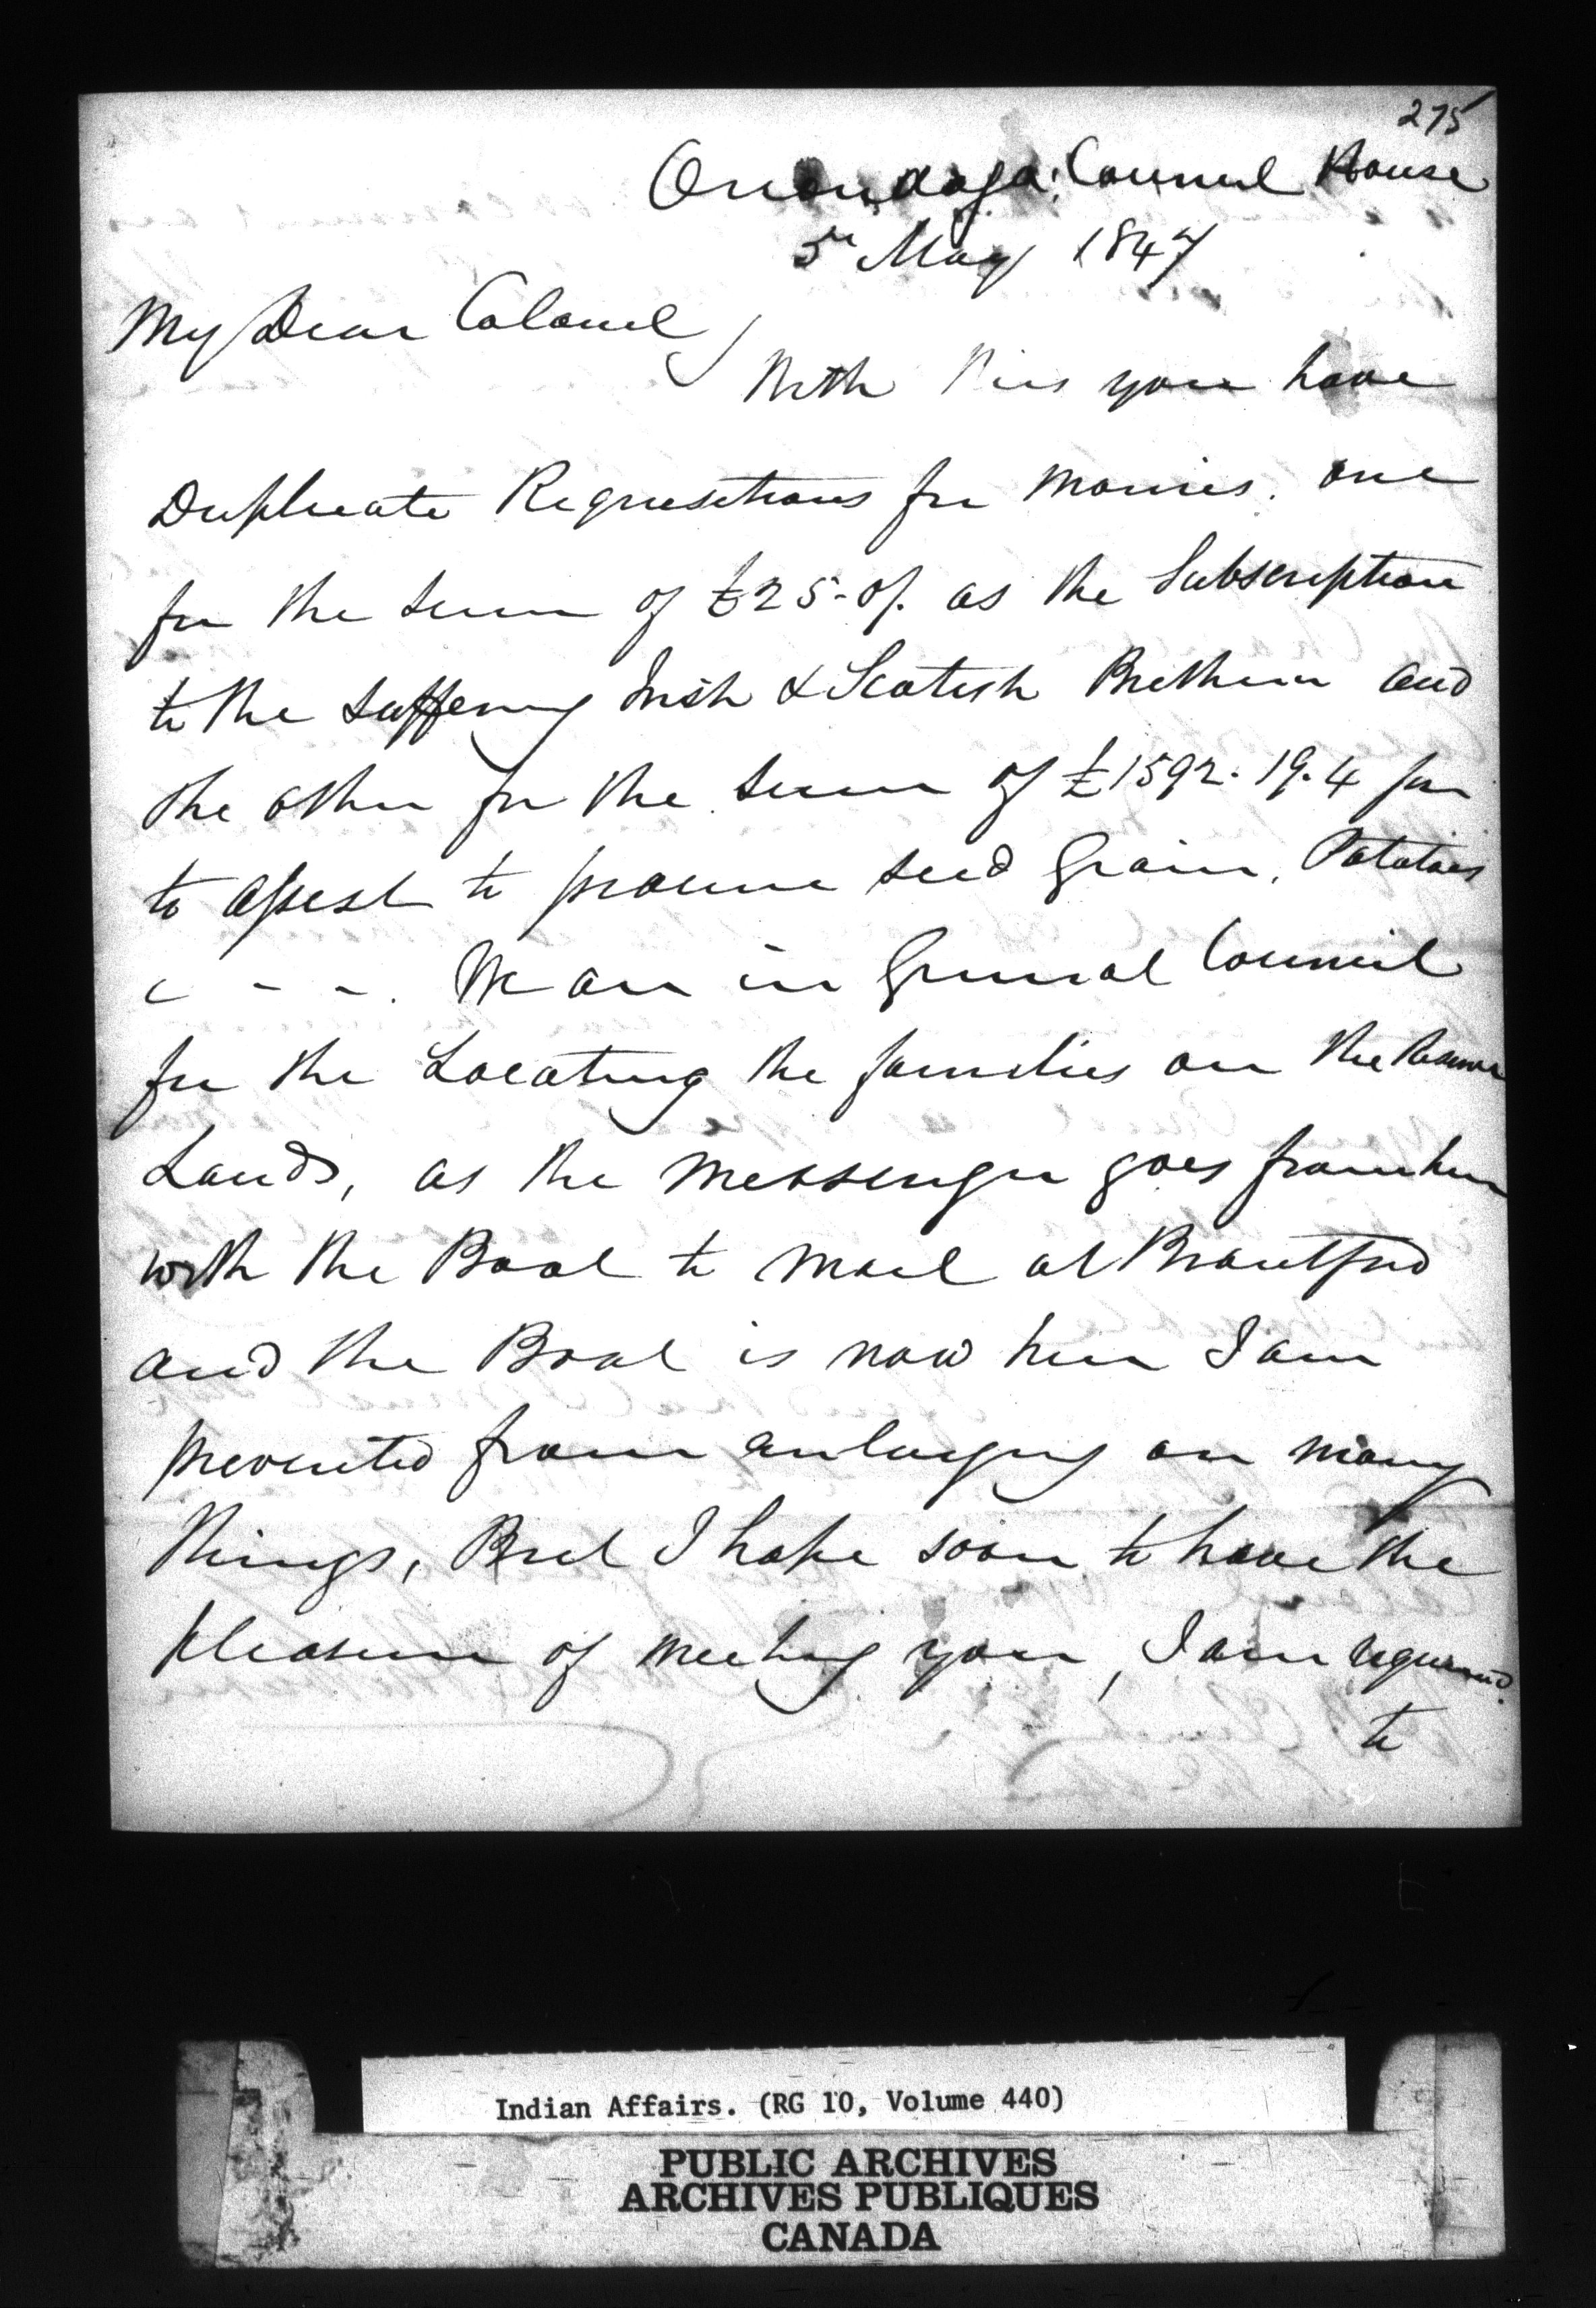 275
Onondaga Council House
5th May 1847
My Dear Colonel,
With this you have
Duplicate Requisitions for monies. one
for the sum of £25-0/. as the Subscription
to the suffering Irish & Scotish Brethern and
the other for the sum of £1592.19.4 for
to assist to procure seed Grain, Potatoes
c - - . We are in General Council
for the Locating the families on the Reserve
Lands, as the Messenger goes from here
with the Boat to mail at Brantford
and the Boat is now here I am
prevented from enlarging on many
things, But I hope soon to have the
pleasure of meeting you, I am
to
Indian Affairs. (RG 10, Volume 440)
PUBLIC ARCHIVES
ARCHIVES PUBLIQUES
CANADA